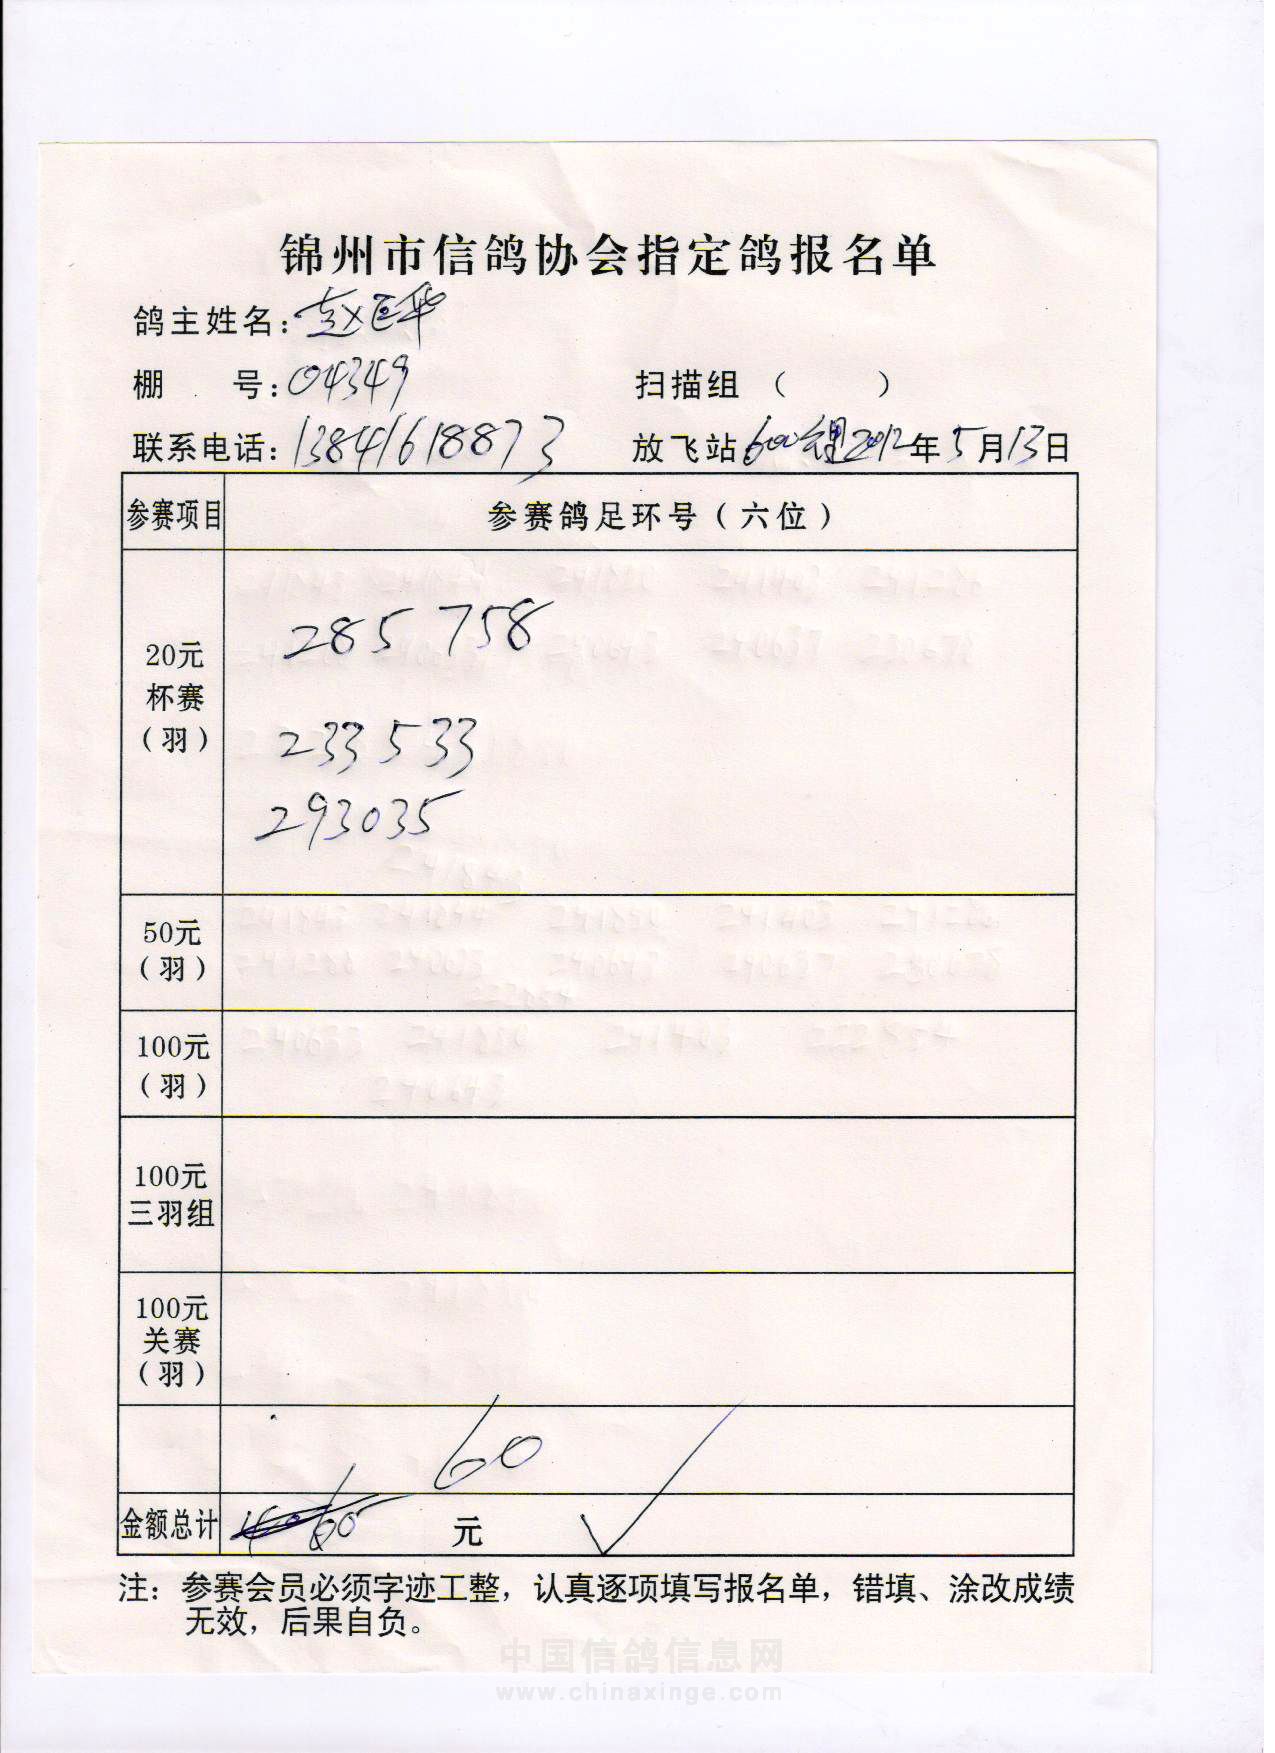 锦州市信鸽协会指定鸽报名单
鸽主姓名：赵巨华
棚 号：04349 扫描组（ ）
联系电话：13841618873 放飞站600公里2012年5月13日
参赛项目 参赛鸽足环号（六位）
20元
杯赛
（羽）
285758
233533
293035
50元
（羽）
100元
（羽）
100元
三羽组
100元
关赛
（羽）
60
金额总计 60 元
注：参赛会员必须字迹工整，认真逐项填写报名单，错填、涂改成绩
无效，后果自负。
中国信鸽信息网
www.chinaxinge.com